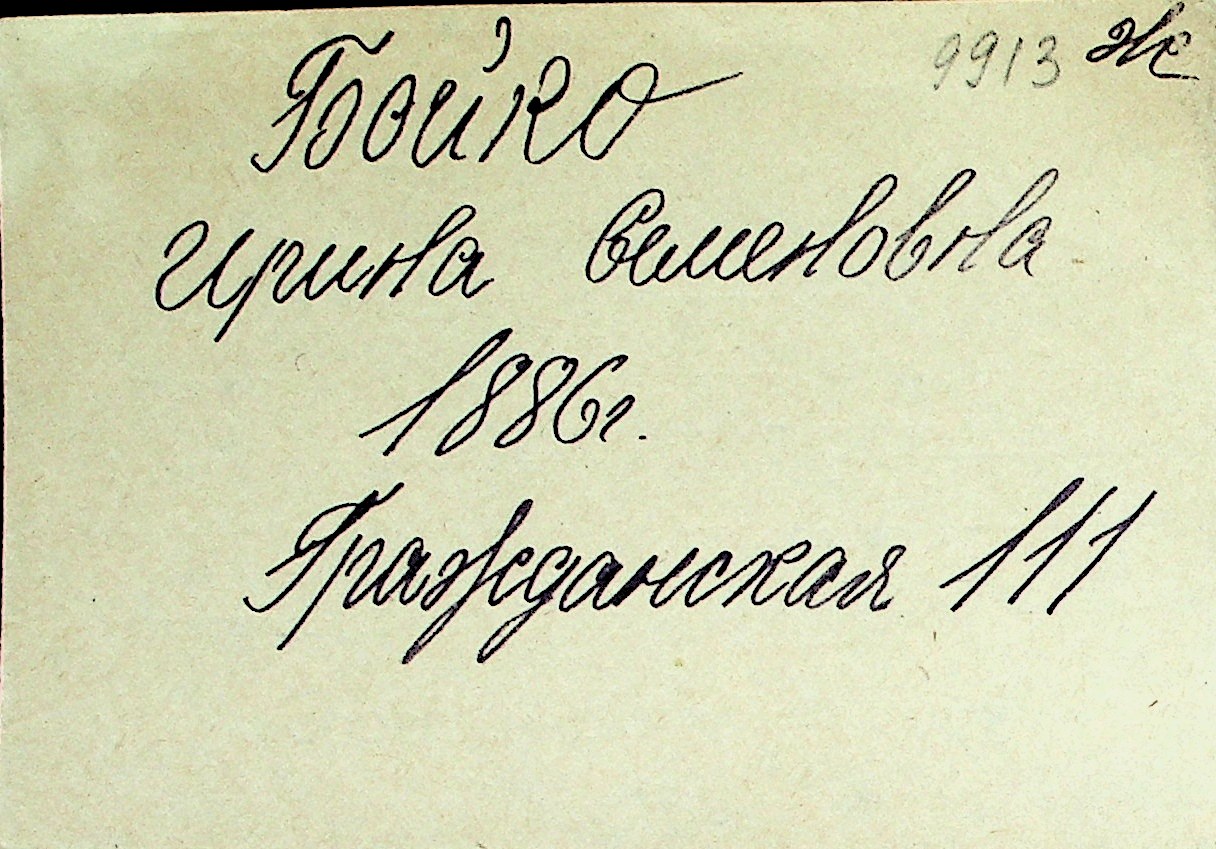 9913 Ж
Бойко
Ирина Семеновна
1886г.
Гражданская 111